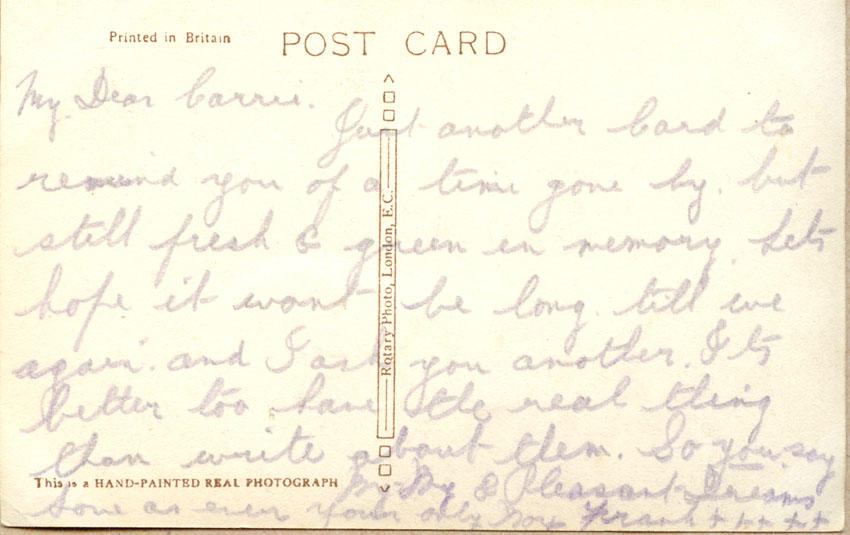 Printed in Britain
POST CARD
My Dear Carrie.
Just another Card to
remind you of a time gone by. but
still fresh & green in memory. Lets
hope it wont be long. till we
again. and I ask you another. Its
better too have the real thing
than write about them. So you say
By-By & Pleasant Dreams
Love as ever your only Frank + + + + +
Rotary Photo, London, E.C.
This is a HAND-PAINTED REAL PHOTOGRAPH